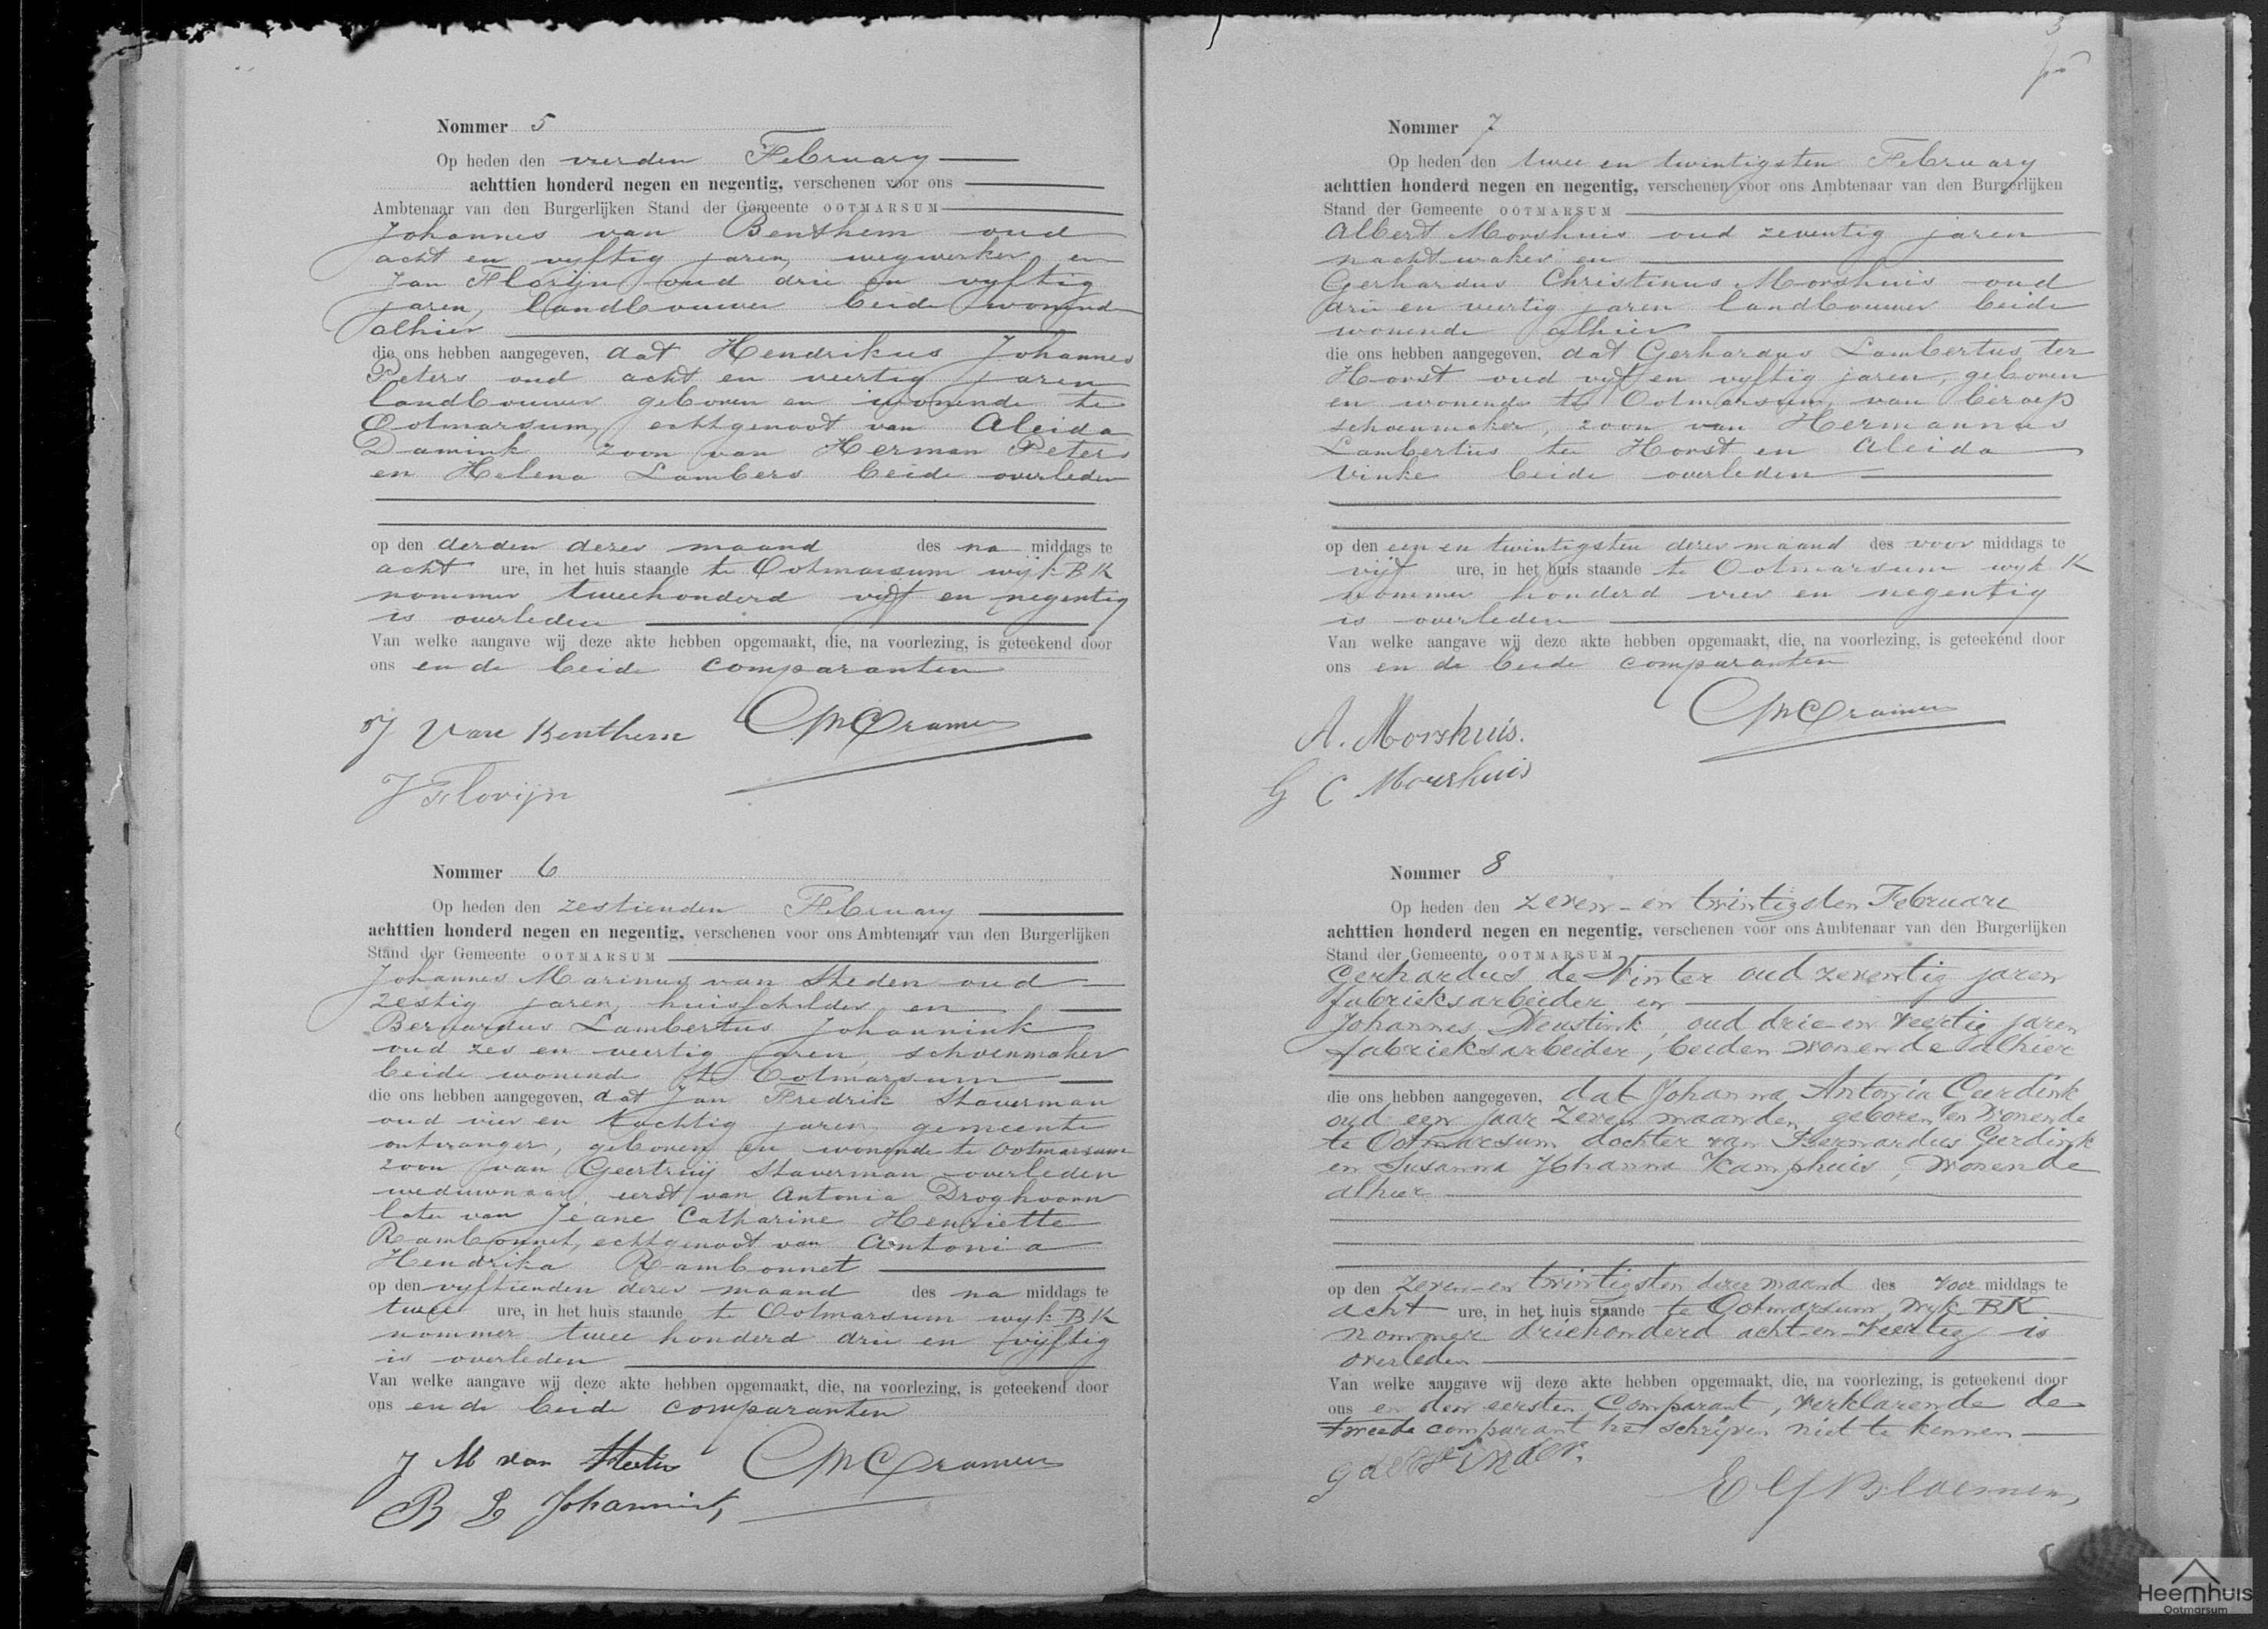 Nommer 5
Op heden den vierden February
achttien honderd negen en negentig, verschenen voor ons
Ambtenaar van den Burgerlijken Stand der Gemeente OOTMARSUM
Johannes van Benthem oud
acht en vyftig jaren, wegwerker en
Jan Florijn oud drie en vyftig
jaren, landbouwer beide wonende
alhier
die ons hebben aangegeven, dat Hendrikus Johannes
Peters oud acht en veertig jaren
landbouwer geboren en wonende te
Ootmarsum, echtgenoot van Aleida
Damink zoon van Herman Peters
en Helena Lambers beide overleden
op den derden dezer maand des na middags te
acht ure, in het huis staande te Ootmarsum wijk BK
nommer tweehonderd vijf en negentig
is overleden
Van welke aangave wij deze akte hebben opgemaakt, die, na voorlezing, is geteekend door
ons en de beide comparanten
J van Benthem CMCramer
J Florijn
Nommer 6
Op heden den zestienden February
achttien honderd negen en negentig, verschenen voor ons Ambtenaar van den Burgerlijken
Stand der Gemeente OOTMARSUM
Johannes Marinus van Steden oud
zestig jaren, huisschilder en
Bernardus Lambertus Johannink
oud zes en veertig jaren, schoenmaker
beide wonende te Ootmarsum
die ons hebben aangegeven, dat Jan Fredrik Staverman
oud vier en tachtig jaren, gemeente
ontvanger, geboren en wonende te Ootmarsum
zoon van Geertruij Staverman overleden
weduwnaar eerst van Antonia Droghoorn
later van Jeane Catharine Henriette
Rambonnet, echtgenoot van Antonia
Hendrika Rambonnet
op den vyftienden dezer maand des na middags te
twee ure, in het huis staande te Ootmarsum wyk BK
nommer twee honderd drie en vijftig
is overleden
Van welke aangave wij deze akte hebben opgemaakt, die, na voorlezing, is geteekend door
ons en de beide comparanten
J M van Steden CMCramer
B L Johannink
3
Nommer 7
Op heden den twee en twintigsten February
achttien honderd negen en negentig, verschenen voor ons Ambtenaar van den Burgerlijken
Stand der Gemeente OOTMARSUM
Albert Morshuis oud zeventig jaren
nachtwaker en
Gerhardus Christinus Morshuis oud
drie en veertig jaren landbouwer beide
wonende alhier
die ons hebben aangegeven, dat Gerhardus Lambertus ter
Horst oud vijf en vyftig jaren, geboren
en wonende te Ootmarsum, van beroep
schoenmaker, zoon van Hermannus
Lambertus ter Horst en Aleida
Vinke beide overleden
op den een en twintigsten dezer maand des voor middags te
vijf ure, in het huis staande te Ootmarsum wyk K
nommer honderd vier en negentig
is overleden
Van welke aangave wij deze akte hebben opgemaakt, die, na voorlezing, is geteekend door
ons en de beide comparanten
A. Morshuis. CMCramer
G C Morshuis
Nommer 8
Op heden den zeven-en twintigsten Februari
achttien honderd negen en negentig, verschenen voor ons Ambtenaar van den Burgerlijken
Stand der Gemeente OOTMARSUM
Gerhardus de Winter oud zeventig jaren
fabrieksarbeider en
Johannes Neustink, oud drie-en veertig jaren
fabrieksarbeider, beiden wonende alhier
die ons hebben aangegeven, dat Johanna Antonia Geerdink
oud een jaar zeven maanden, geboren en wonende
te Ootmarsum dochter van Bernardus Geerdink
en Susanna Johanna Kamphuis, wonende
alhier
op den zeven-en twintigsten dezer maand des voor middags te
acht ure, in het huis staande te Ootmarsum, wyk BK
nommer driehonderd acht-en-veertig is
overleden
Van welke aangave wij deze akte hebben opgemaakt, die, na voorlezing, is geteekend door
ons en den eersten Comparant, verklarende de
tweede comparant het schrijven niet te kennen
g de Winder.
Bloemen
Heemhuis
Ootmarsum